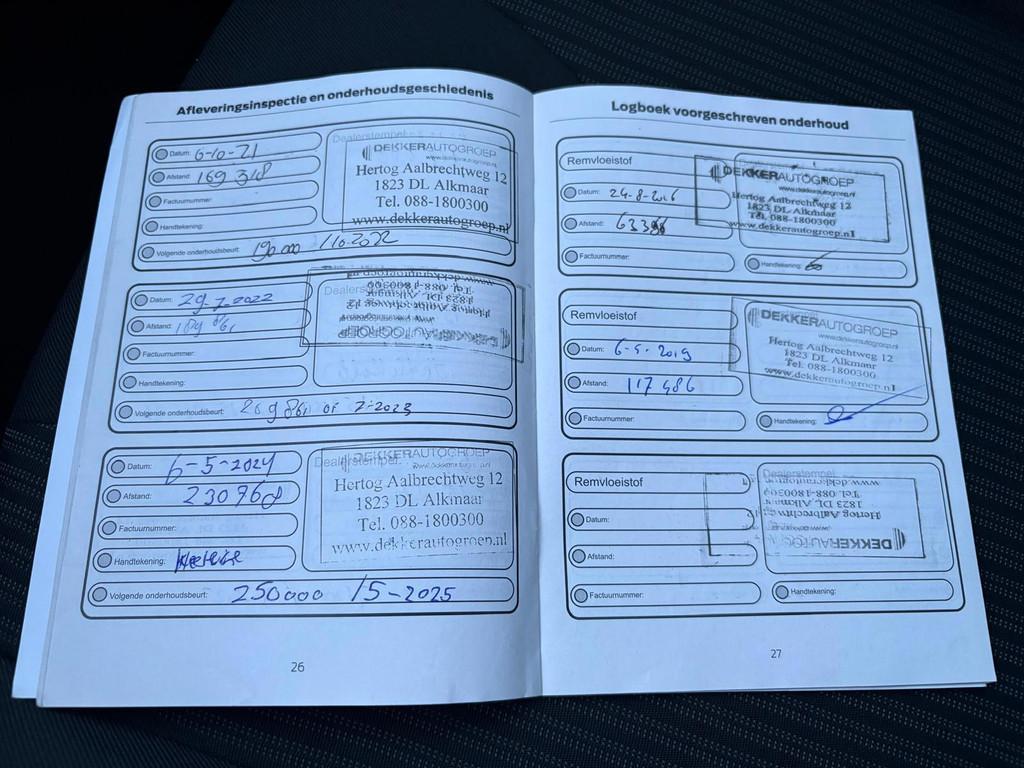 Afleveringsinspectie en onderhoudsgeschiedenis
Datum: 6-10-21
Afstand: 169 318
Factuurnummer:
Handtekening:
Volgende onderhoudsbeurt: 190.000 /10-2022
Dealerstempel:
DEKKERAUTOGROEP
www.dekkerautogroep.nl
Hertog Aalbrechtweg 12
1823 DL Alkmaar
Tel. 088-1800300
www.dekkerautogroep.nl
Datum: 29-7-2022
Afstand: 189 861
Factuurnummer:
Handtekening:
Volgende onderhoudsbeurt: 209861 of 7-2023
Dealerstempel
DEKKERAUTOGROEP
Hertog Aalbrechtweg 12
1823 DL Alkmaar
Tel. 088-1800300
www.dekkerautogroep.nl
Datum: 6-5-2024
Afstand: 230768
Factuurnummer:
Handtekening:
Volgende onderhoudsbeurt: 250000 /5-2025
Dealerstempel:
DEKKERAUTOGROEP
www.dekkerautogroep.nl
Hertog Aalbrechtweg 12
1823 DL Alkmaar
Tel. 088-1800300
www.dekkerautogroep.nl
26
Logboek voorgeschreven onderhoud
Remvloeistof
Datum: 24-8-2016
Afstand:
Factuurnummer:
Handtekening:
DEKKERAUTOGROEP
www.dekkerautogroep.nl
Hertog Aalbrechtweg 12
1823 DL Alkmaar
Tel. 088-1800300
www.dekkerautogroep.nl
Remvloeistof
Datum: 6-5-2019
Afstand: 117486
Factuurnummer:
Handtekening:
DEKKERAUTOGROEP
www.dekkerautogroep.nl
Hertog Aalbrechtweg 12
1823 DL Alkmaar
Tel. 088-1800300
www.dekkerautogroep.nl
Remvloeistof
Datum:
Afstand:
Factuurnummer:
Handtekening:
Dealerstempel
DEKKERAUTOGROEP
Hertog Aalbrechtweg
1823 DL Alkmaar
Tel. 088-1800300
www.dekkerautogroep
27